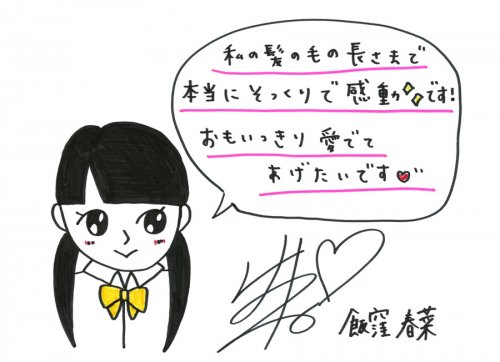 私の髪の毛の長さまで
本当にそっくりで感動です!
おもいっきり愛でて
あげたいです
飯窪春菜